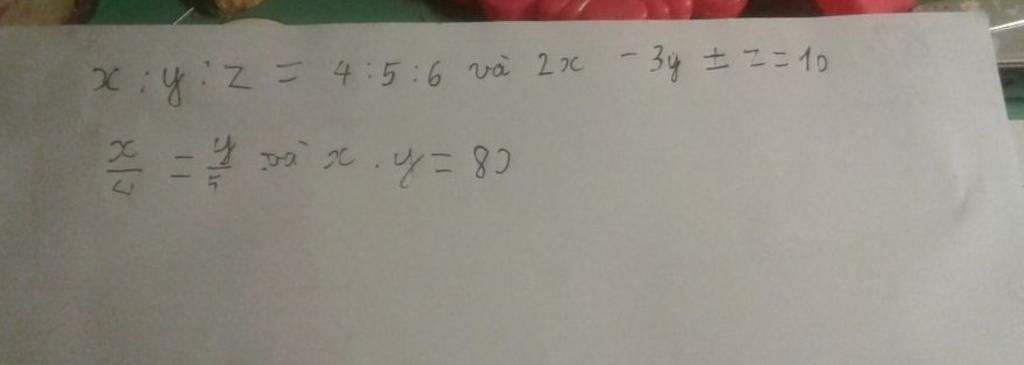 x : y : z = 4 : 5 : 6 và 2x - 3y ± z = 10
x/4 = y/5 và x . y = 80